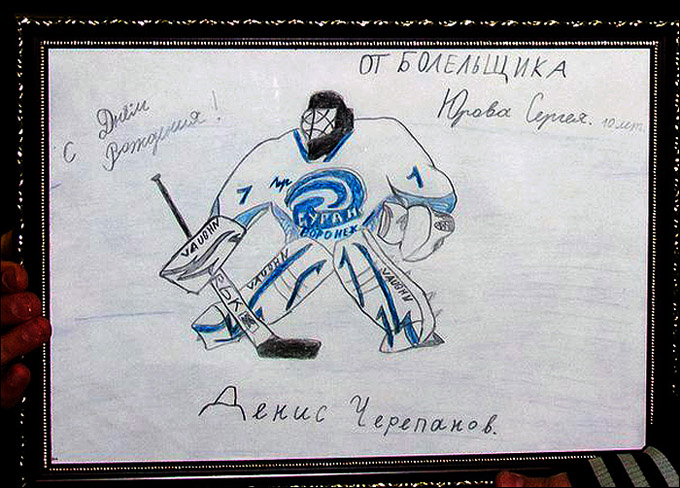 ОТ БОЛЕЛЬЩИКА
Юрова Сергея. 10 лет.
С Днём
Рождения!
7
1
БУРАН
ВОРОНЕЖ
VAUGHN
VAUGHN
VAUGHN
РБК
Денис Черепанов.